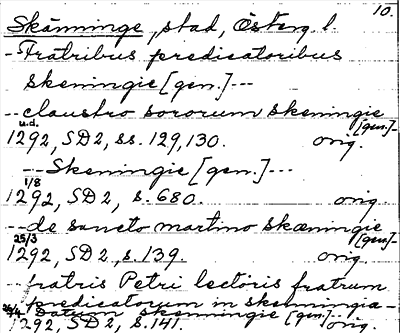 10.
Skänninge, stad, Österg l.
- Fratribus predicatoribus
skeningie [gen.] ---
-- claustro sororum skeningie
[gen.]-
u.d.
1292, SD 2, ss. 129, 130. orig.
-- Skeningie [gen.] ---
1/8
1292, SD 2, s. 680. orig
-- de sancto martino skæningie
[gen]-
25/3
1292, SD 2, s. 139. orig.
-- fratris Petri lectoris fratrum
predicatorum in skenningia -
Datum skeningie [gen.]--
1292, SD 2, s. 141. orig.